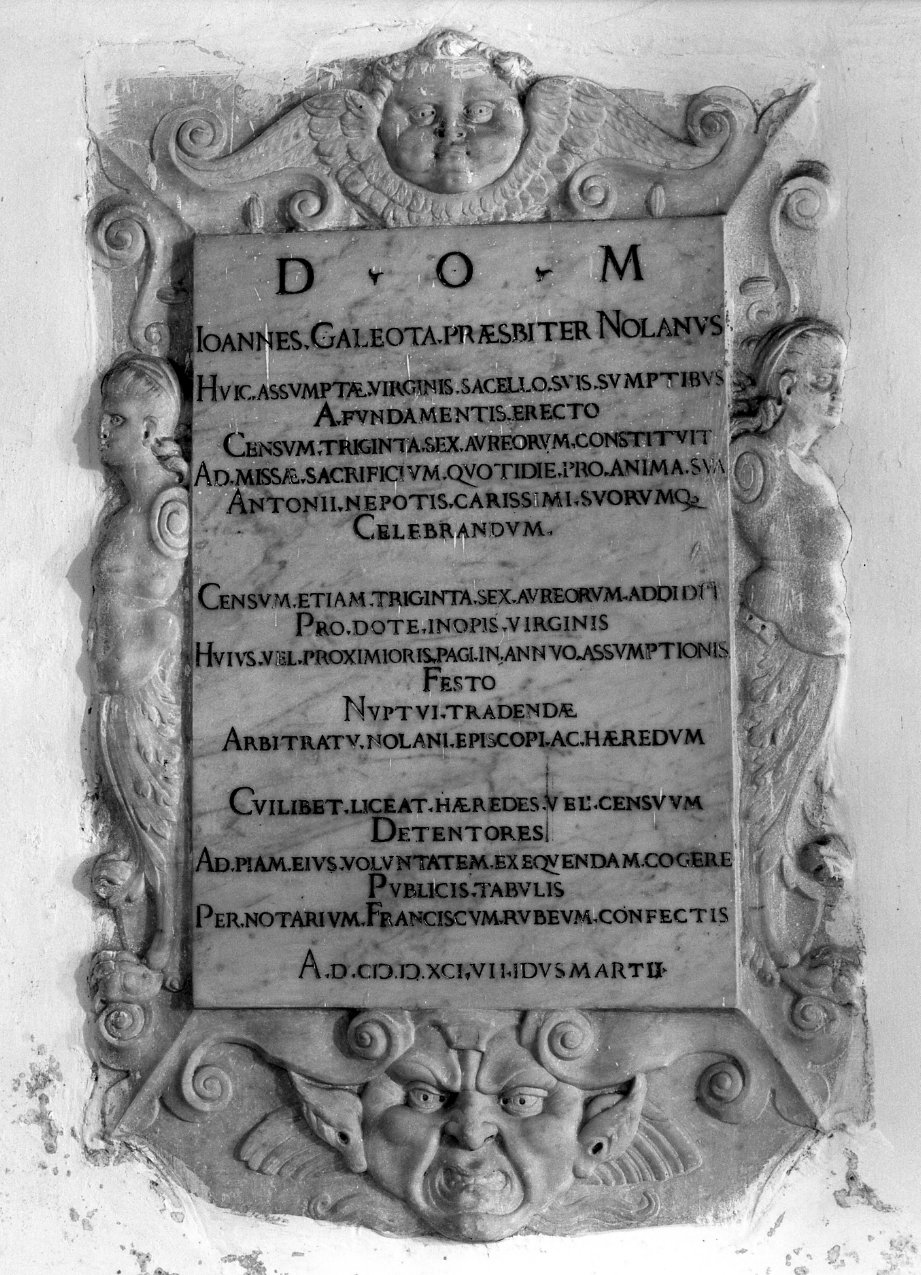 D · O · M
IOANNES.GALEOTA.PRÆSBITER NOLANVS
HVIC.ASSVMPTÆ.VIRGINIS.SACELLO.SVIS.SVMPTIBVS
A.FVNDAMENTIS.ERECTO
CENSVM.TRIGINTA.SEX.AVREORVM.CONSTITVIT
AD.MISSÆ.SACRIFICIVM.QVOTIDIE.PRO.ANIMA.SVA
ANTONII.NEPOTIS.CARISSIMI.SVORVMQ
CELEBRANDVM.
CENSVM.ETIAM.TRIGINTA.SEX.AVREORVM.ADDIDIT
PRO.DOTE.INOPIS.VIRGINIS
HVIVS.VEL.PROXIMIORIS.PAGI.IN.ANNVO.ASSVMPTIONIS
FESTO
NVPTVI.TRADENDÆ
ARBITRATV.NOLANI.EPISCOPI.AC.HÆREDVM
CVILIBET.LICEAT.HÆREDES.VEL.CENSVVM
DETENTORES
AD.PIAM.EIVS.VOLVNTATEM.EXEQVENDAM.COGERE
PVBLICIS.TABVLIS
PER.NOTARIVM.FRANCISCVM.RVBEVM.CONFECTIS
A.D.CIƆ.IƆ.XCI.VII.IDVS MARTII.